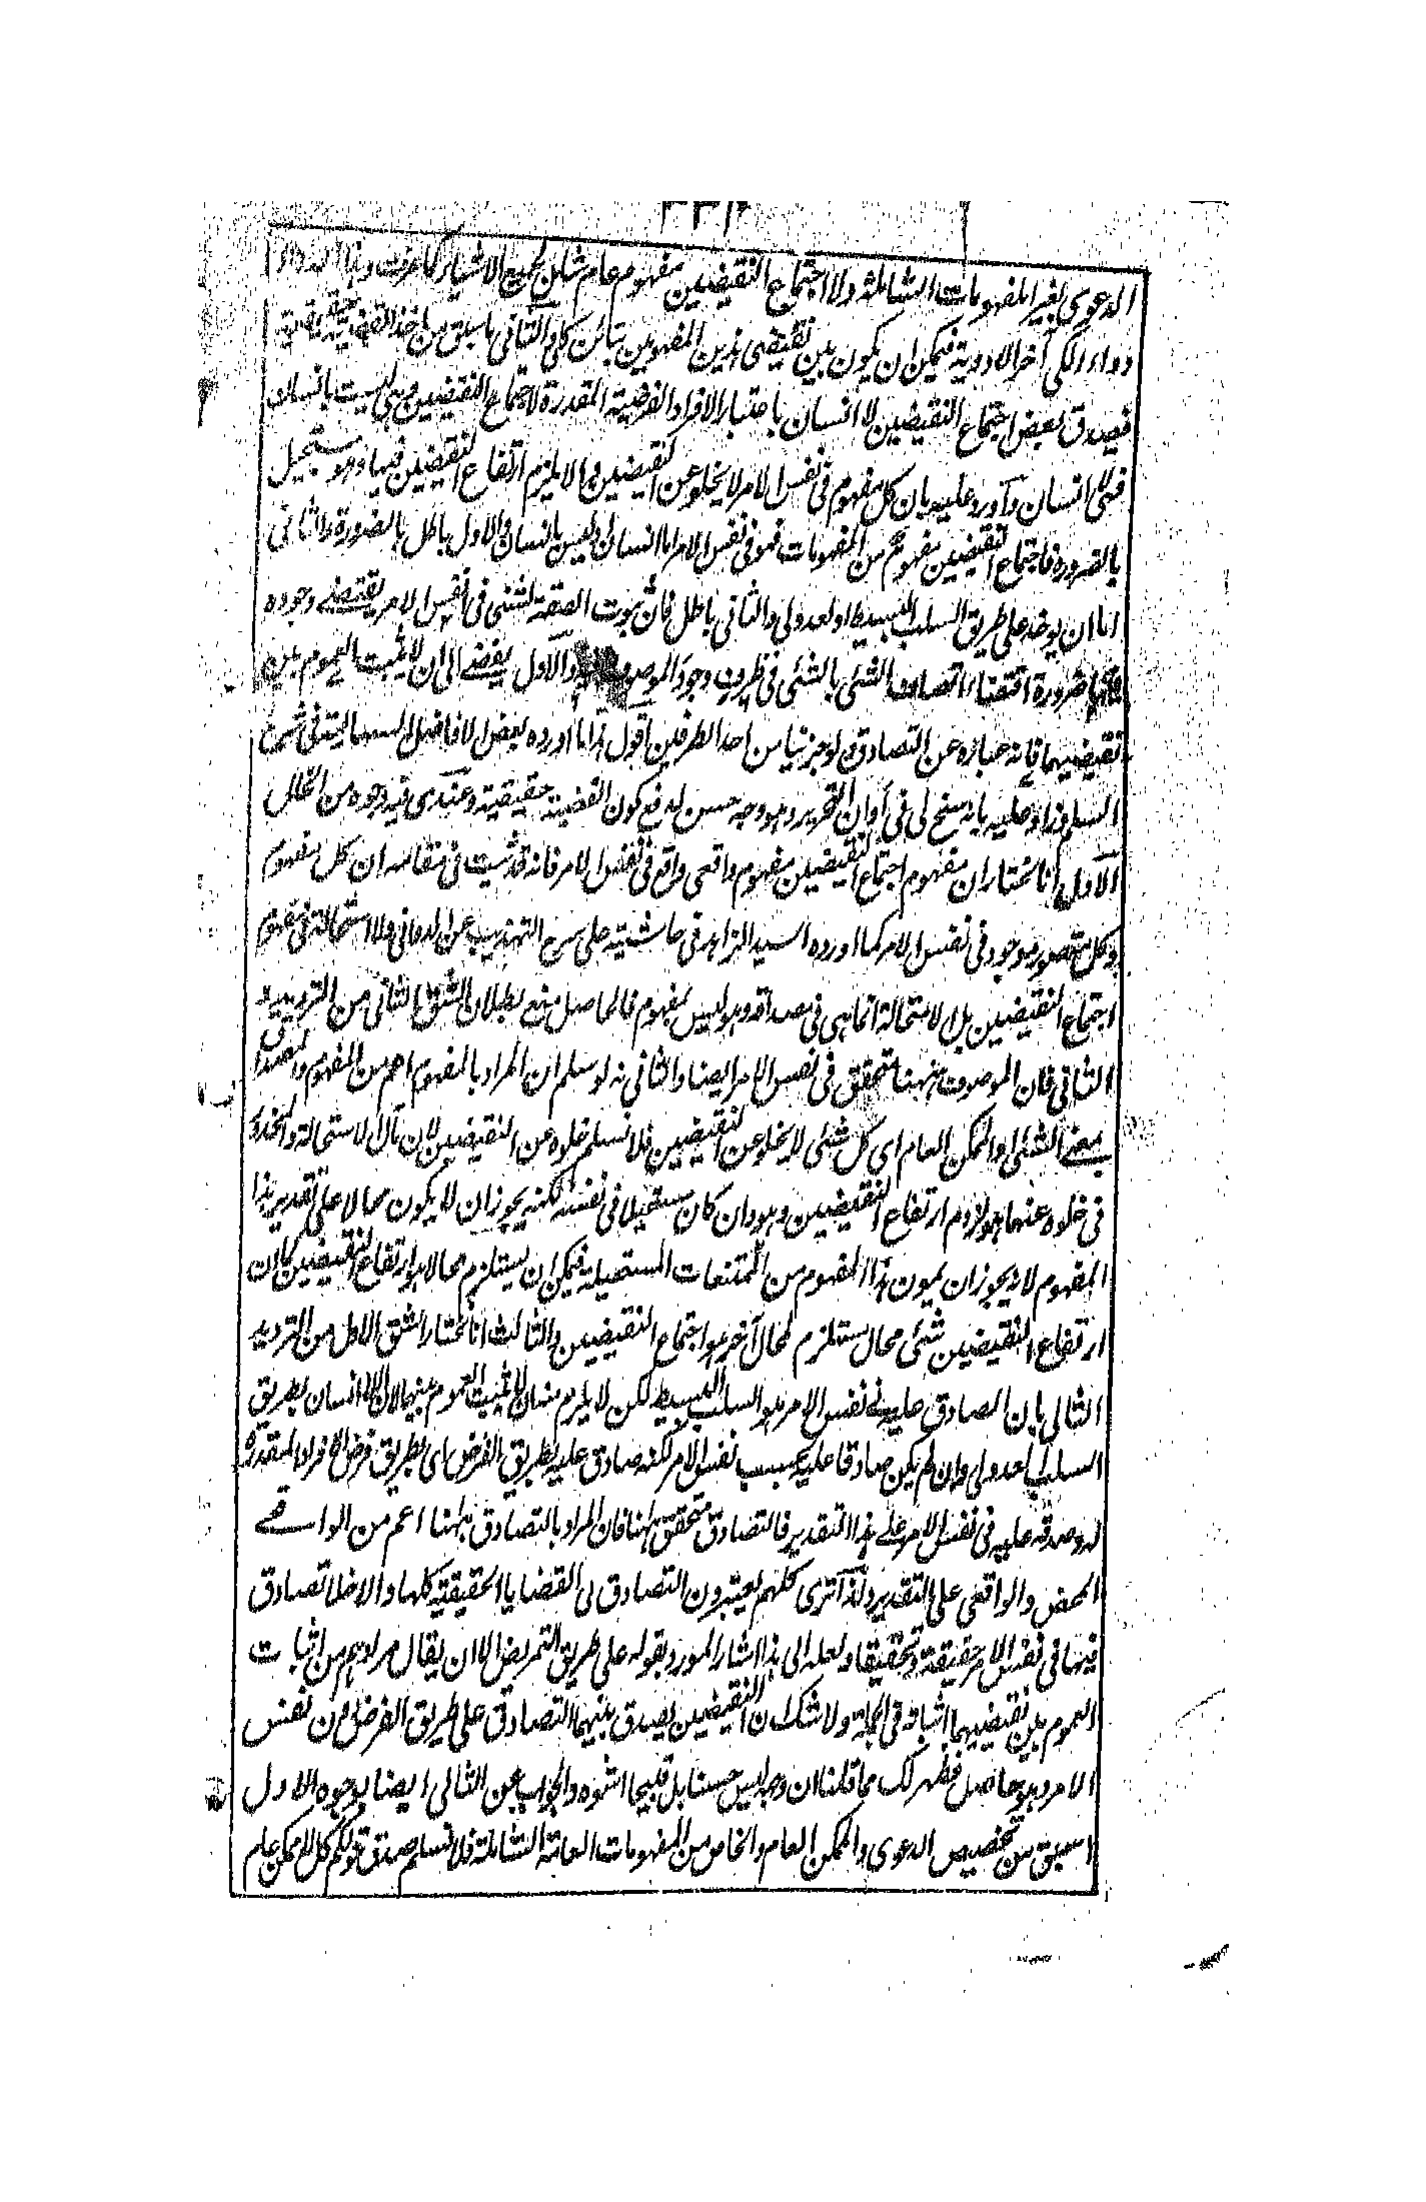 الدعوى بغير المفهومات الشاملة ولا اجتماع النقيضين مفهوم عام شامل لجميع الاشياء كما عرفت
دواء الكي آخر الادوية فيمكن ان يكون بين نقيضى هذين المفهومين تباين كلى والثانى ما سبق من اخذ القضية حقيقية
فيصدق بعض اجتماع النقيضين لا انسان باعتبار الافراد الفرضية المقدرة لاجتماع النقيضين وهى ليست بانسان
فهى لا انسان وأورد عليه بان كل مفهوم فى نفس الامر لا يخلو عن النقيضين والا يلزم ارتفاع النقيضين فيها وهو مستحيل
بالضرورة فاجتماع النقيضين مفهوم من المفهومات فهو فى نفس الامر اما انسان او ليس بانسان والاول باطل بالضرورة والثانى
اما ان يوخذ على طريق السلب البسيط او العدولى والثانى باطل فان ثبوت الصفة لشئ فى نفس الامر يقتضى وجوده
فيها ضرورة اقتضاء اتصاف الشئ بالشئ فى ظرف وجود الموصوف فيه والأول يفضى الى ان لا يثبت العموم بين
نقيضيهما فانه عبارة عن التصادق ولو جزئيا من احد الطرفين اقول هذا ما اورده بعض الافاضل السماليه فى شرح
السلم وزاد عليه بانه سنح لى فى أوان التحرير وهو وجه حسن لدفع كون القضية حقيقية وعندى فيه وجوه من الخلل
الأول أنا نختار ان مفهوم اجتماع النقيضين مفهوم واقعى واقع فى نفس الامر فانه قد ثبت فى مقامه ان كل مفهوم
وكل متصور موجود فى نفس الامر كما اورده السيد الزاهد فى حاشيته على شرح التهذيب عن الدوانى ولا استحالة فى مفهوم
اجتماع النقيضين بل الاستحالة انما هى فى مصداقه وهو ليس بمفهوم فالحاصل منع بطلان الشق الثانى من الترديد
الثانى فان الموصوف ههنا متحقق فى نفس الامر ايضا والثانى انه لو سلم ان المراد بالمفهوم اعم من المفهوم والمصداق
بمعنى الشئ والممكن العام اى كل شئ لا يخلو عن النقيضين فلا نسلم خلوه عن النقيضين لان مآل الاستحالة والمحذور
فى خلوه عنهما هو لزوم ارتفاع النقيضين وهو وان كان مستحيلا فى نفسه لكنه يجوز ان لا يكون محالا على تقدير هذا
المفهوم لانه يجوز ان يكون هذا المفهوم من الممتنعات المستحيلة فيمكن ان يستلزم محالا هو ارتفاع النقيضين كما ان
ارتفاع النقيضين شئ محال مستلزم لمحال آخر هو اجتماع النقيضين والثالث انا نختار الشق الاول من الترديد
الثانى بان الصادق عليه فى نفس الامر هو السلب البسيط لكن لا يلزم منه ان لا يثبت العموم بينهما لان اللا انسان بطريق
السلب العدولى وان لم يكن صادقا عليه بحسب نفس الامر لكنه صادق عليه بطريق الفرض اى بطريق فرض الافراد المقدرة
له وصدقه عليه فى نفس الامر على هذا التقدير فالتصادق متحقق ههنا فان المراد بالتصادق ههنا اعم من الواقعى
المحض والواقعى على التقدير ولذا ترى كلهم يعتبرون التصادق فى القضايا الحقيقية كلها والا فلا تصادق
فيها فى نفس الامر حقيقة وتحقيقا ولعله الى هذا اشار المورد بقوله على طريق التمريض الا ان يقال مرادهم من اثبات
العموم بين نقيضيهما اثباته فى الجملة ولا شك ان النقيضين يصدق بينهما التصادق على طريق الفرض دون نفس
الامر وهو حاصل فظهر لك مما قلنا ان وجهه ليس حسنا بل قبيحا اشوه والجواب عن الثانى ايضا بوجوه الاول
ما سبق من تخصيص الدعوى والممكن العام والخاص من المفهومات العامة الشاملة فلا نسلم صدق قولكم كل لا ممكن عام